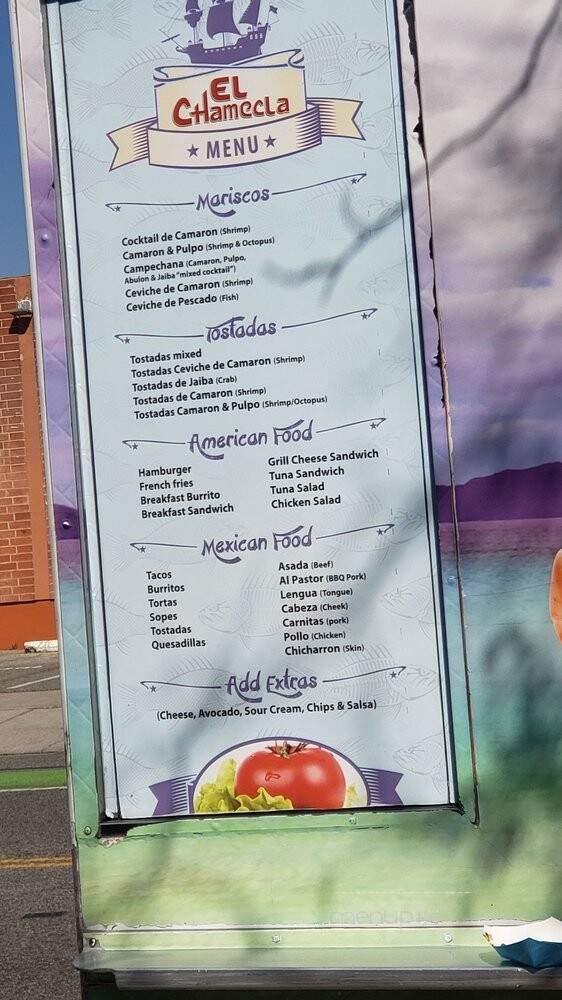 EL
CHamecla
★ MENU ★
Mariscos
Cocktail de Camaron (Shrimp)
Camaron & Pulpo (Shrimp & Octopus)
Campechana (Camaron, Pulpo,
Abulon & Jaiba "mixed cocktail")
Ceviche de Camaron (Shrimp)
Ceviche de Pescado (Fish)
Tostadas
Tostadas mixed
Tostadas Ceviche de Camaron (Shrimp)
Tostadas de Jaiba (Crab)
Tostadas de Camaron (Shrimp)
Tostadas Camaron & Pulpo (Shrimp/Octopus)
American Food
Hamburger
French fries
Breakfast Burrito
Breakfast Sandwich
Grill Cheese Sandwich
Tuna Sandwich
Tuna Salad
Chicken Salad
Mexican Food
Tacos
Burritos
Tortas
Sopes
Tostadas
Quesadillas
Asada (Beef)
Al Pastor (BBQ Pork)
Lengua (Tongue)
Cabeza (Cheek)
Carnitas (pork)
Pollo (Chicken)
Chicharron (Skin)
Add Extras
(Cheese, Avocado, Sour Cream, Chips & Salsa)